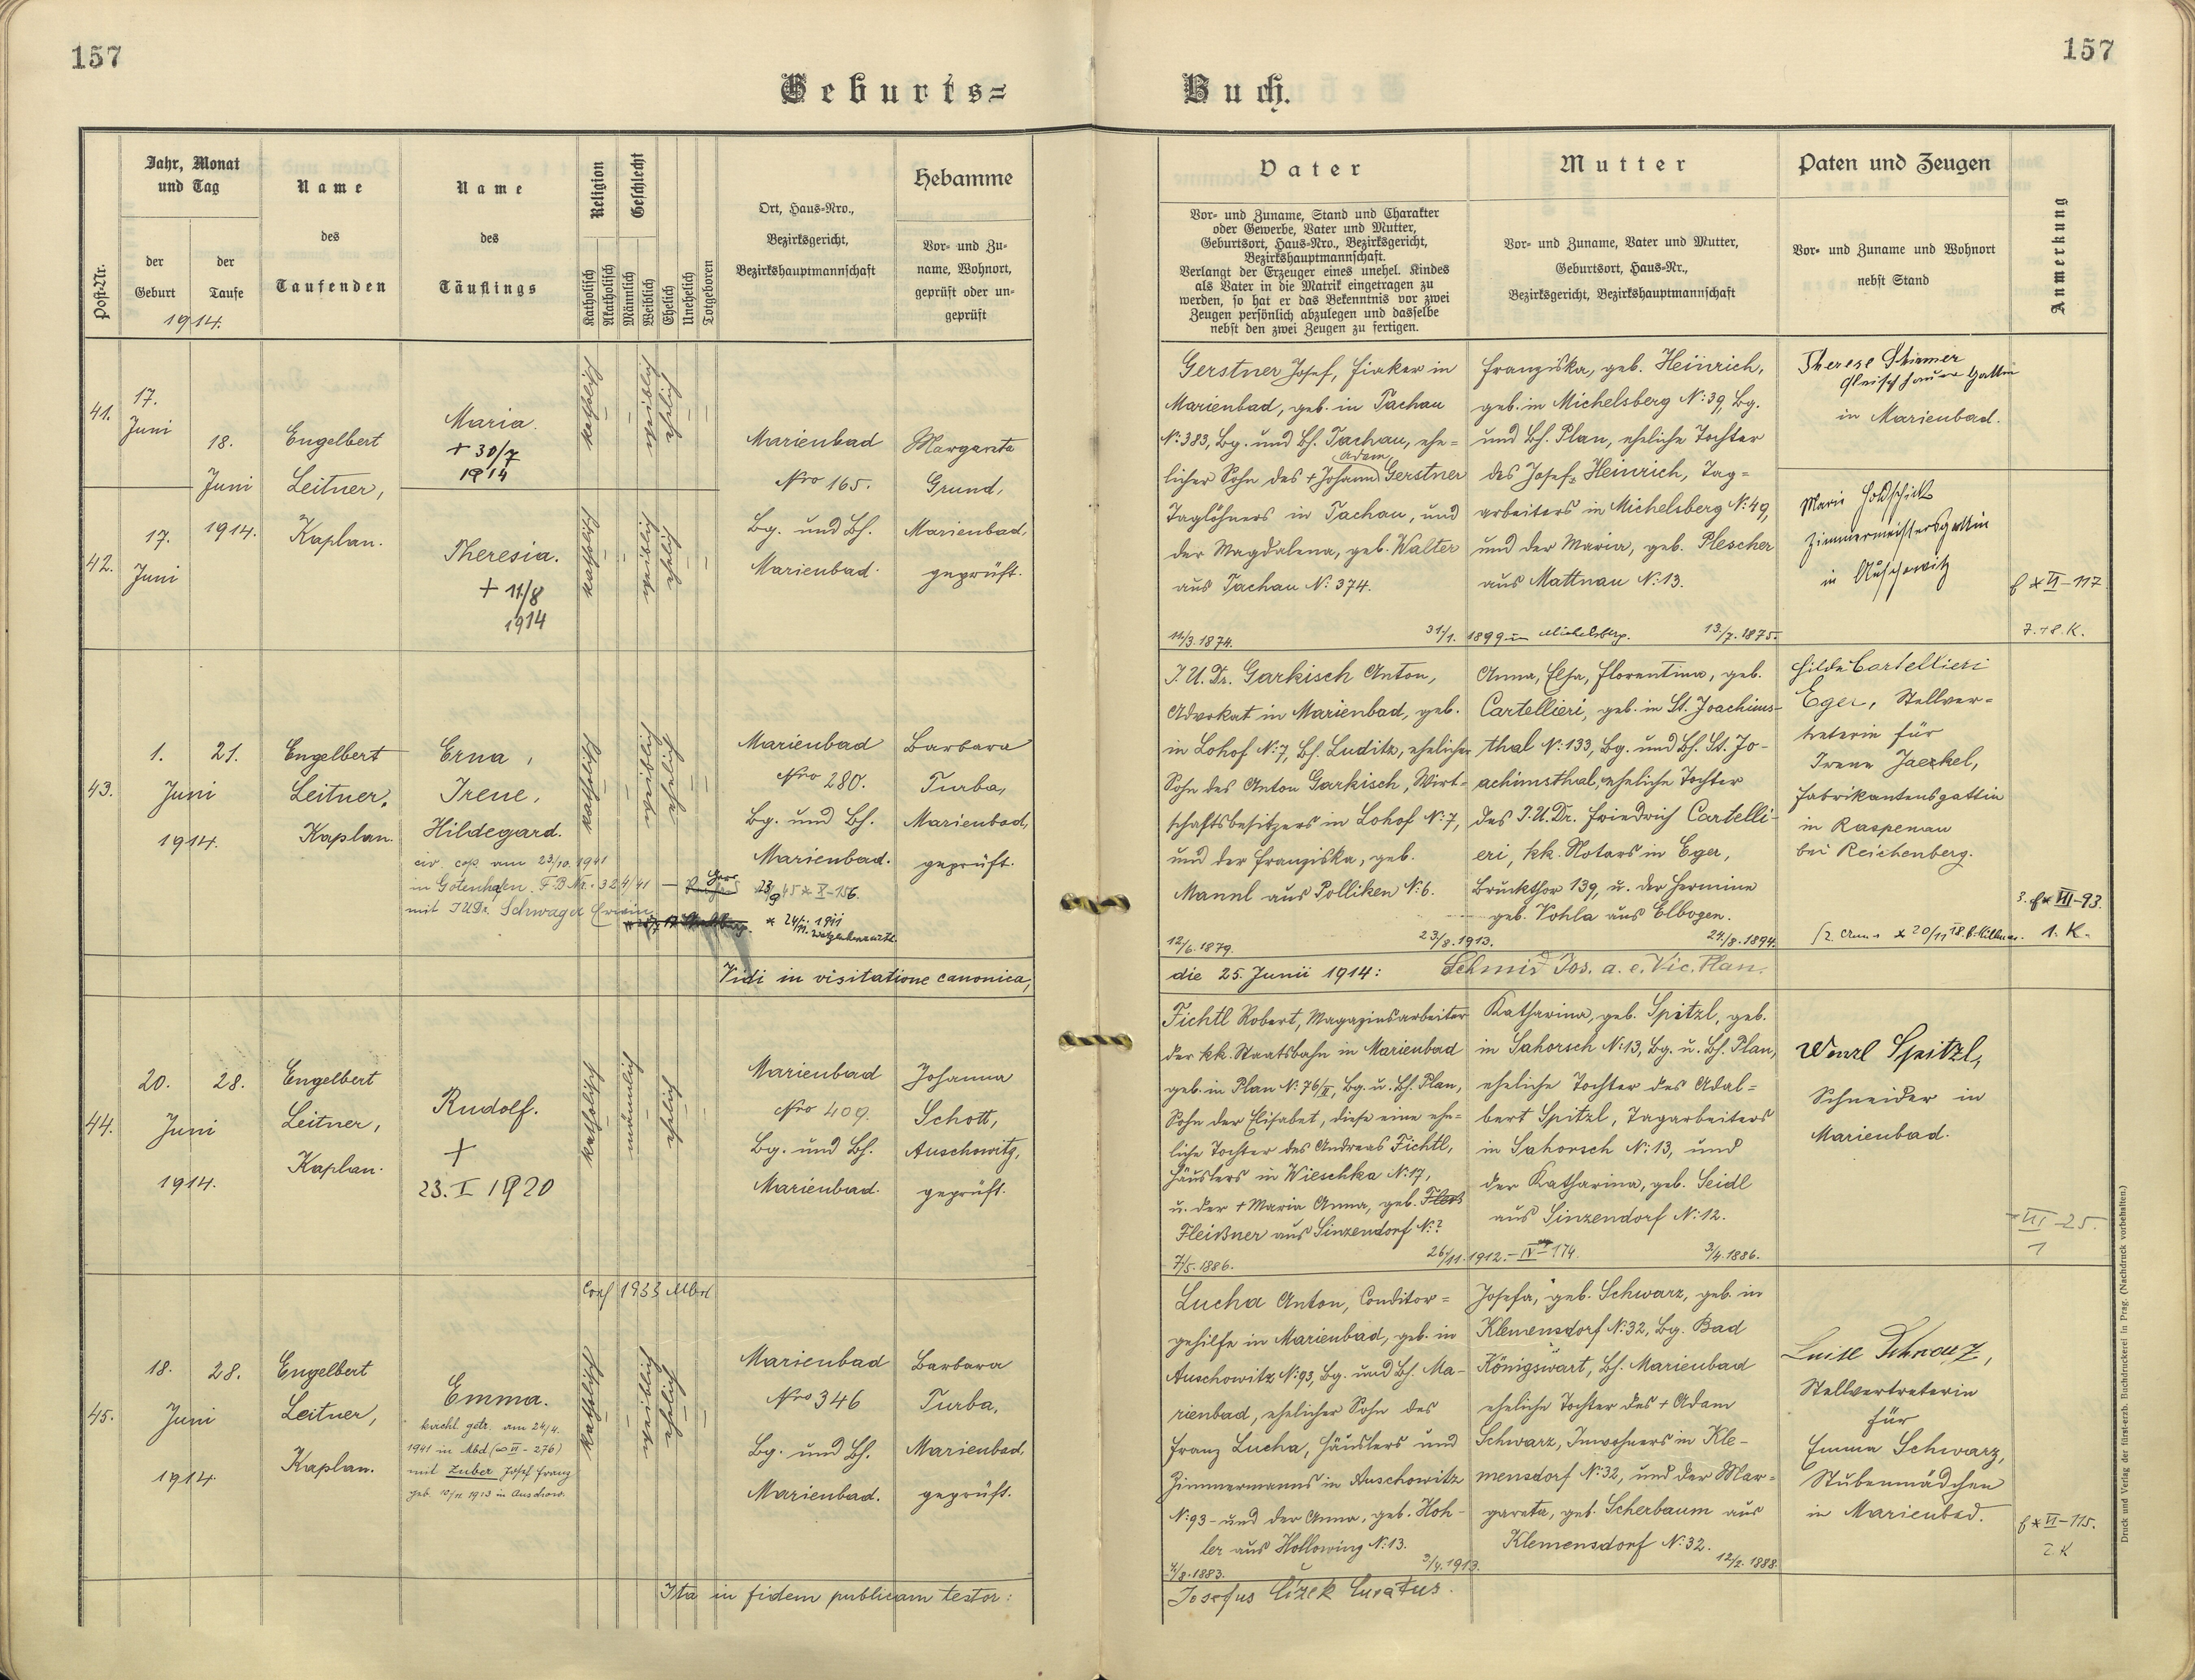 157
157
Geburts=
Buch.
Post-Nr.
Jahr, Monat
und Tag
der
Geburt
der
Taufe
1914.
Name
des
Taufenden
Name
des
Täuflings
Religion
Katholisch
Akatholisch
Geschlecht
Männlich
Weiblich
Ehelich
Unehelich
Totgeboren
Ort, Haus-Nro.,
Bezirksgericht,
Bezirkshauptmannschaft
Hebamme
Vor- und Zu-
name, Wohnort,
geprüft oder un-
geprüft
Vater
Vor- und Zuname, Stand und Charakter
oder Gewerbe, Vater und Mutter,
Geburtsort, Haus-Nro., Bezirksgericht,
Bezirkshauptmannschaft.
Verlangt der Erzeuger eines unehel. Kindes
als Vater in die Matrik eingetragen zu
werden, so hat er das Bekenntnis vor zwei
Zeugen persönlich abzulegen und dasselbe
nebst den zwei Zeugen zu fertigen.
Mutter
Vor- und Zuname, Vater und Mutter,
Geburtsort, Haus-Nr.,
Bezirksgericht, Bezirkshauptmannschaft
Paten und Zeugen
Vor- und Zuname und Wohnort
nebst Stand
Anmerkung
41.
17.
Juni
42.
17.
Juni
18.
Juni
1914.
Engelbert
Leitner,
Kaplan.
Maria.
+ 30/7
1914
Theresia.
+ 11/8
1914
katholisch
weiblich
ehelich
katholisch
weiblich
ehelich
Marienbad
Nro 165.
Bg. und Bh.
Marienbad.
Margareta
Grund,
Marienbad,
geprüft.
Gerstner Josef, Fiaker in
Marienbad, geb. in Tachau
N: 383, Bg. und Bh. Tachau, ehe=
Adam
licher Sohn des + Johann Gerstner
Taglöhners in Tachau, und
der Magdalena, geb. Walter
aus Tachau N: 374.
11/3.1874.
31/1. 1899 in Michelsberg.
Franziska, geb. Heinrich,
geb. in Michelsberg N: 39, Bg.
und Bh. Plan, eheliche Tochter
des Josef Heinrich, Tag=
arbeiters in Michelsberg N: 49,
und der Maria, geb. Plescher
aus Mattnau N: 13.
13/7. 1875.
Therese
Fleischhauer Gattin
in Marienbad.
Marie
Zimmermeistersgattin
in Auschowitz
f * VI-117
7.+8. K.
43.
1. 21.
Juni
1914.
Engelbert
Leitner,
Kaplan.
Erna,
Irene,
Hildegard.
civ. cop. am 23/10. 1941
in Gotenhafen. F.B Nr. 324/41
mit JUDr. Schwager Erwin
katholisch
weiblich
ehelich
Marienbad
Nro 280.
Bg. und Bh.
Marienbad.
* 24/11. 1911
Barbara
Turba,
Marienbad,
geprüft.
J. U. Dr. Garkisch Anton,
Advokat in Marienbad, geb.
in Lohof N: 7, Bh. Luditz, ehelicher
Sohn des Anton Garkisch, Wirt-
schaftsbesitzers in Lohof N: 7,
und der Franziska, geb.
Mannl aus Polliken N: 6.
12/6. 1879.
23/8. 1913.
Anna, Elsa, Florentina, geb.
Cartellieri, geb. in St. Joachims-
thal N: 133, Bg. und Bh. St. Jo-
achimsthal, eheliche Tochter
des J.U.Dr. Friedrich Cartelli-
eri, kk. Notars in Eger,
Bruckthor 139, u. der Hermine
geb. Vohla aus Elbogen.
24/8. 1894.
Hilde Cartellieri
Eger, Stellver-
treterin für
Irene Jaeckel,
Fabrikantensgattin
in Raspenau
bei Reichenberg.
1. K.
Vidi in visitatione canonica,
die 25. Junii 1914: Schmid Jos. a. e. Vic. Plan.
44.
20. 28.
Juni
1914.
Engelbert
Leitner,
Kaplan.
Rudolf.
+
23. I 1920
katholisch
männlich
ehelich
Marienbad
Nro 409.
Bg. und Bh.
Marienbad.
Johanna
Schott,
Auschowitz,
geprüft.
Fichtl Robert, Magazinsarbeiter
der kk. Staatsbahn in Marienbad
geb. in Plan N: 76/II, Bg. u. Bh. Plan,
Sohn der Elisabet, diese eine ehe=
liche Tochter des Andreas Fichtl,
Häuslers in Wieschka N: 17,
u. der + Maria Anna, geb.
Fleißner aus Sinzendorf N: ?
7/5. 1886.
26/11. 1912. - IV - 174.
Katharina, geb. Spitzl, geb.
in Sahorsch N: 13, Bg. u. Bh. Plan,
eheliche Tochter des Adal=
bert Spitzl, Tagarbeiters
in Sahorsch N: 13, und
der Katharina, geb. Seidl
aus Sinzendorf N: 12.
3/4. 1886.
Wenzl Spitzl,
Schneider in
Marienbad.
VII-25.
1
45.
18. 28.
Juni
1914.
Engelbert
Leitner,
Kaplan.
Emma.
kirchl. getr. am 24/4.
1941 in Mbd (∞ VI - 276)
mit Zuber Josef Franz
geb. 10/11 1913 in Auschow.
1933
katholisch
weiblich
ehelich
Marienbad
Nro 346
Bg. und Bh.
Marienbad.
Barbara
Turba,
Marienbad,
geprüft.
Lucha Anton, Conditor=
gehilfe in Marienbad, geb. in
Auschowitz N: 93, Bg. und Bh. Ma-
rienbad, ehelicher Sohn des
Franz Lucha, Häuslers und
Zimmermanns in Auschowitz
N: 93 - und der Anna, geb. Hoh-
ler aus Hollowing N: 13.
4/8. 1883.
3/4. 1913.
Josefa, geb. Schwarz, geb. in
Klemensdorf N: 32, Bg. Bad
Königswart, Bh. Marienbad
eheliche Tochter des + Adam
Schwarz, Inwohners in Kle-
mensdorf N: 32, und der Mar=
gareta, geb. Scherbaum aus
Klemensdorf N: 32.
12/2. 1888.
Luise Schwarz,
Stellvertreterin
für
Emma Schwarz,
Stubenmädchen
in Marienbad.
f * VI-115.
2 K
Ita in fidem publicam testor:
Josefus Cízek Curatus.
Druck und Verlag der fürst-erzb. Buchdruckerei in Prag. (Nachdruck vorbehalten.)